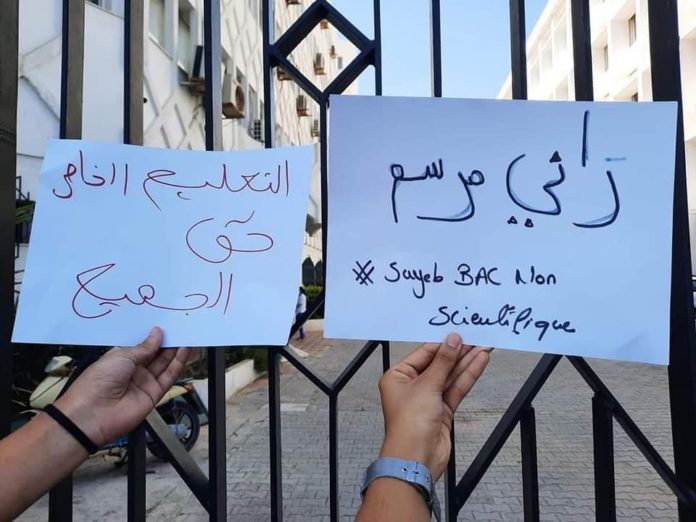 التعليم الخاص
حق
الجميع
راني مرسم
# Sayeb BAC Non
Scientifique